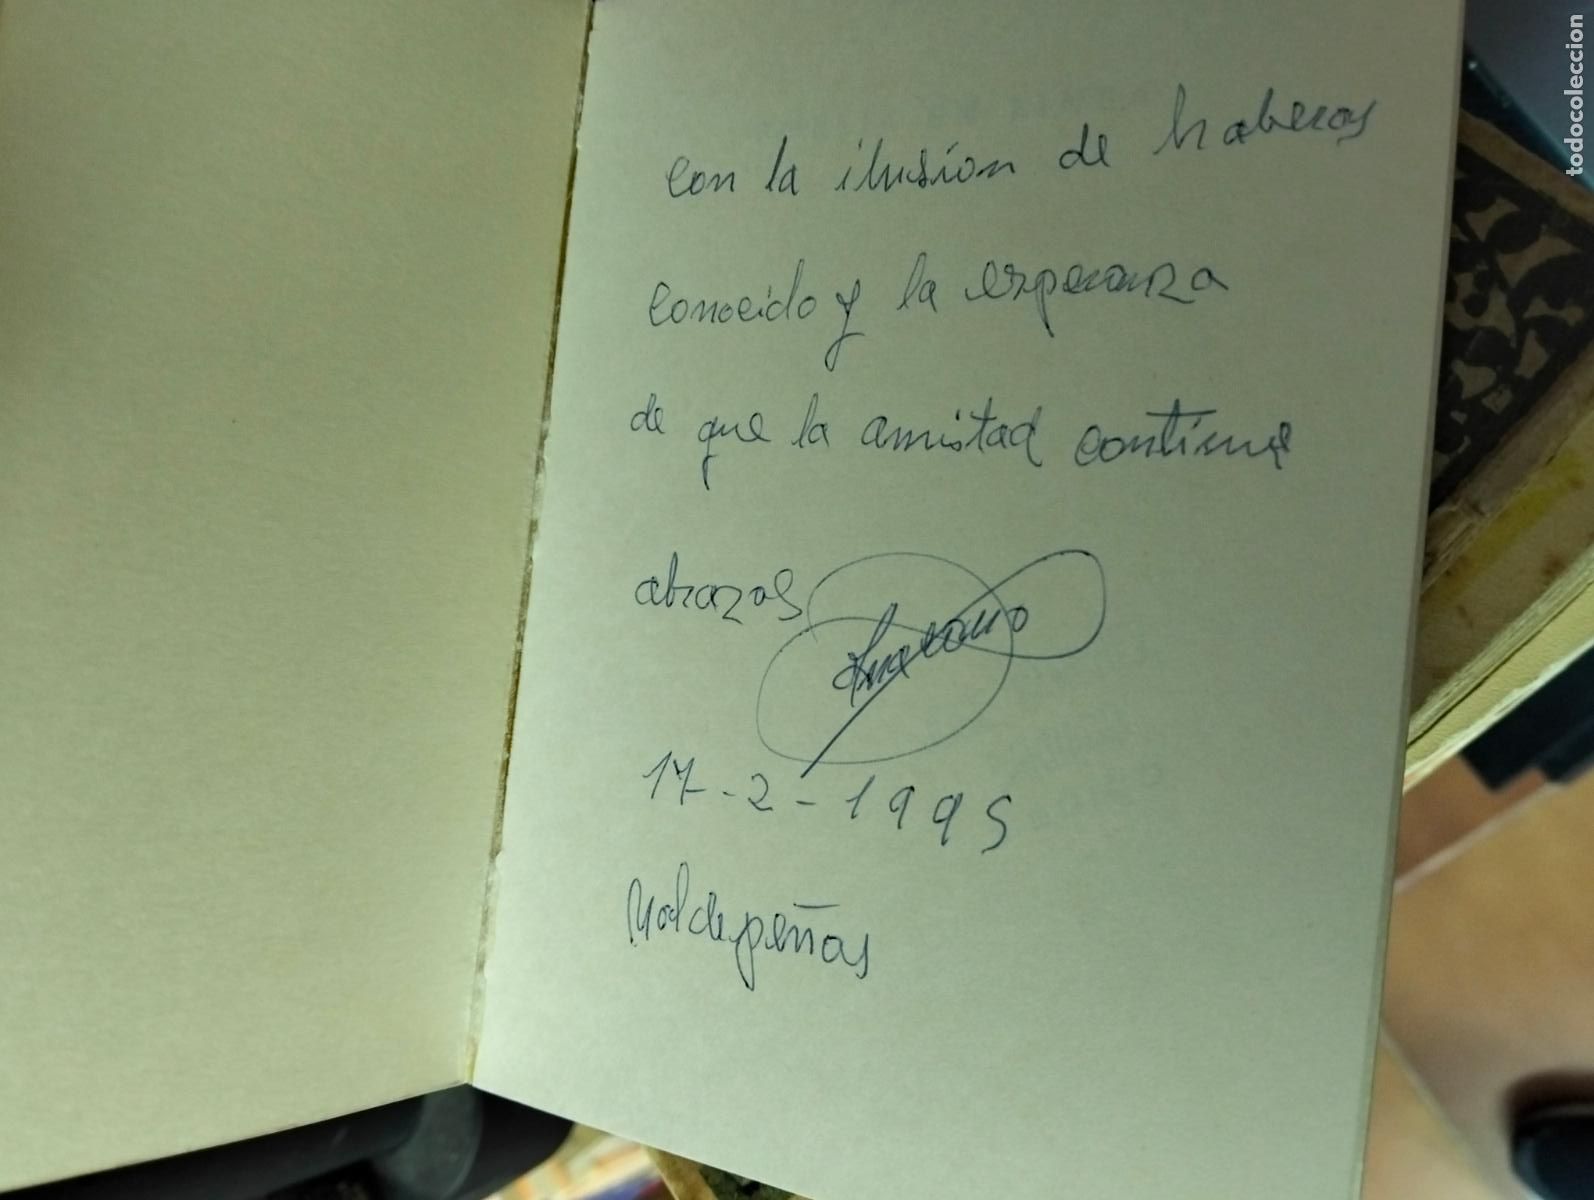 con la ilusión de haberos
conocido y la esperanza
de que la amistad continue
abrazos
17-2-1995
Valdepeñas
todocoleccion